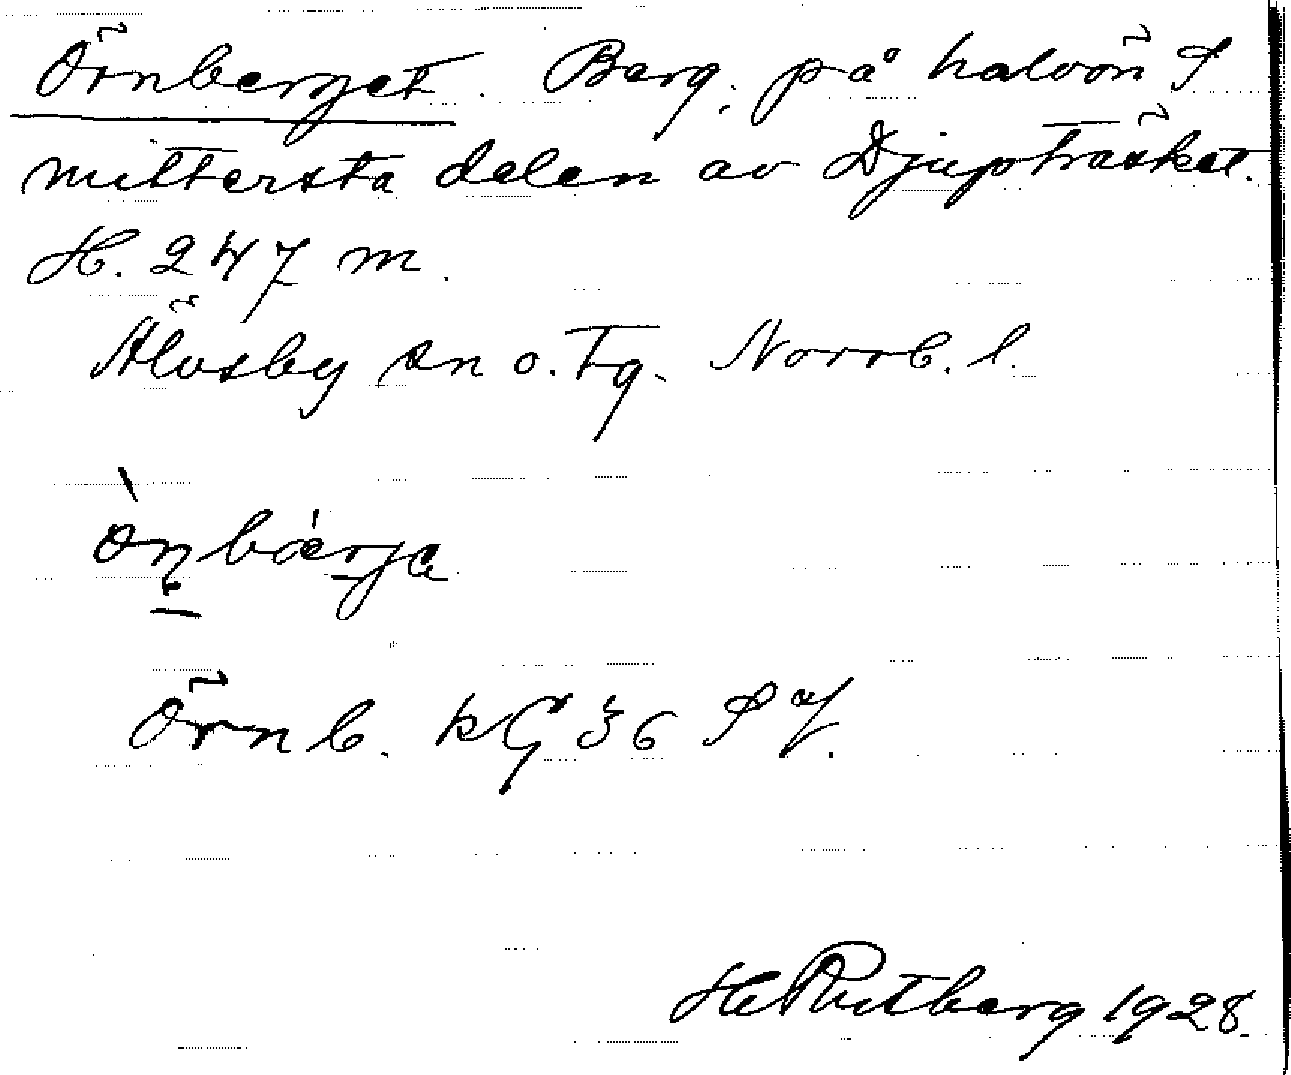 Örnberget. Berg, på halvön S
mittersta delen av Djupträsket.
H. 247 m.
Älvsby sn o. tg. Norrb. l.
ònbǽrja
Örnb. kG 36 SV.
H Rutberg 1928